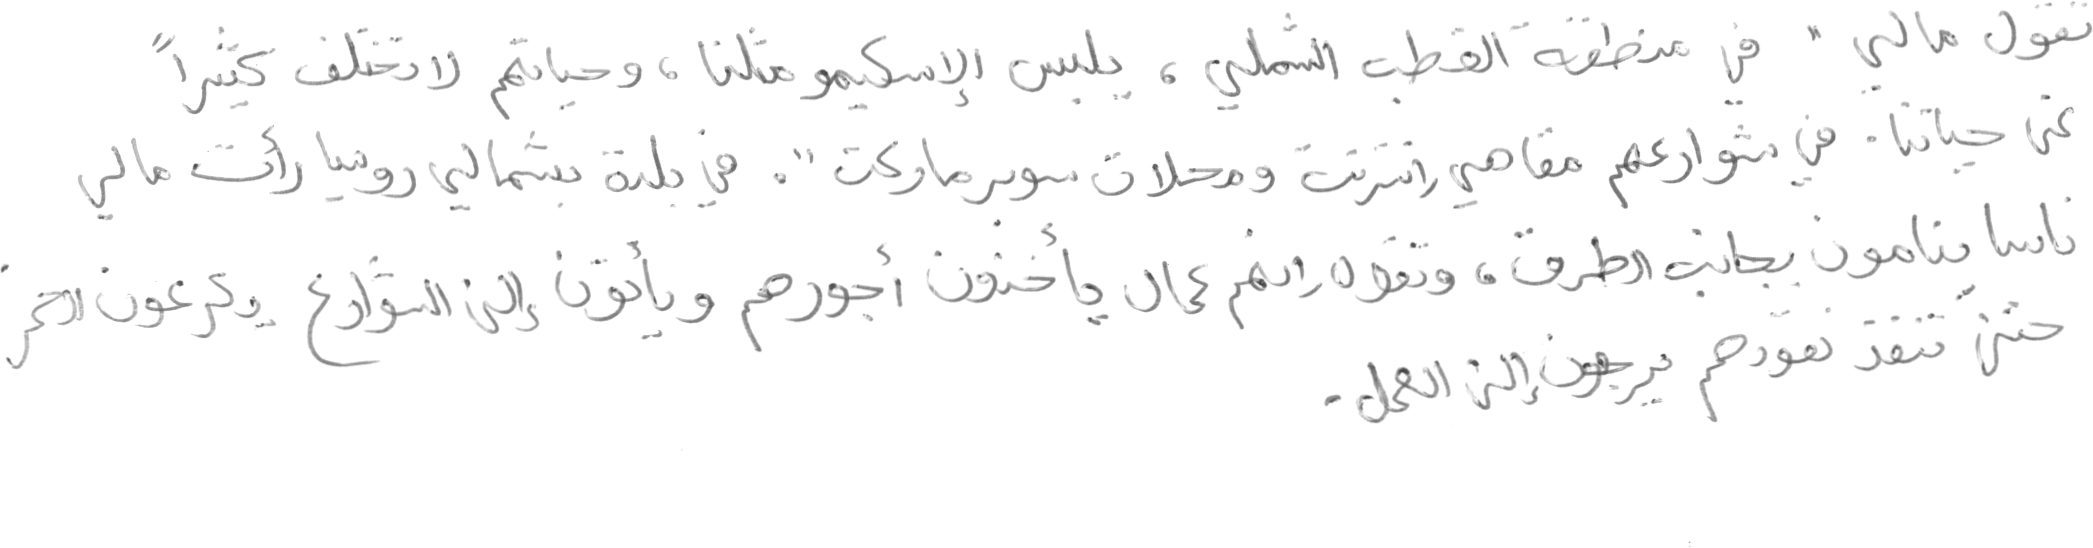 تقول مالي " في منطقة القطب الشمالي ، يلبس الإسكيمو مثلنا ، وحياتهم لا تختلف كثيراً
عن حياتنا . في شوارعهم مقاهي انترنت ومحلات سوبرماركت " . في بلدة بشمالي روسيا رأت مالي
ناسا ينامون بجانب الطرق ، وتقول إنهم عمال يأخذون أجورهم ويأتون إلى الشوارع يكرعون الخمر
حتى تنفذ نقودهم فيرجعون إلى العمل .